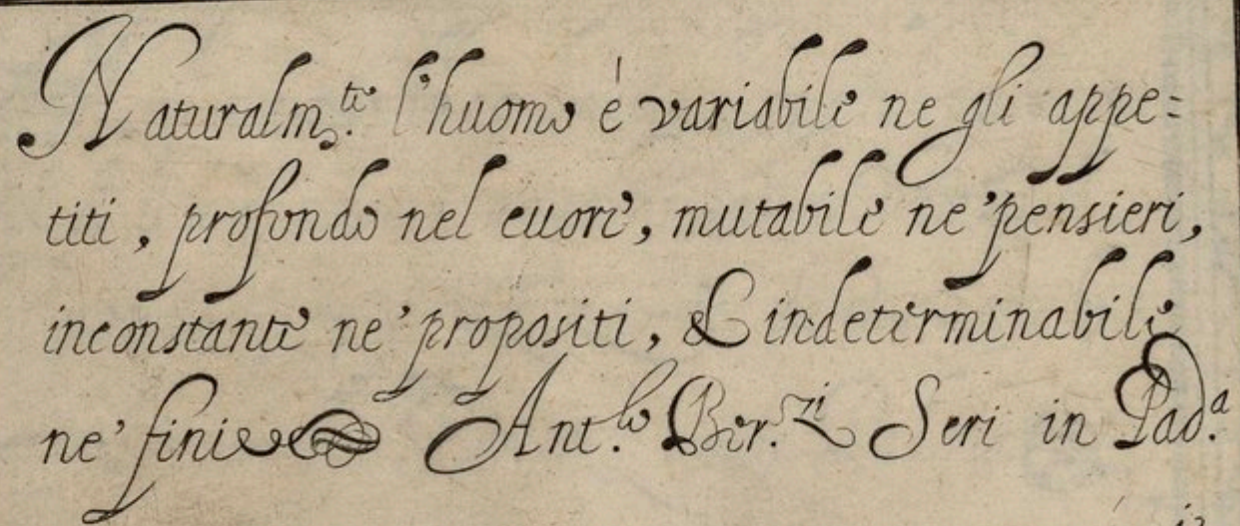 Naturalm.te l'huomo è variabile ne gli appe=
titi, profondo nel cuore, mutabile ne' pensieri,
inconstante ne' propositi, & indeterminabile
ne' fini Ant.lo Ber.zi Seri in Pad.a